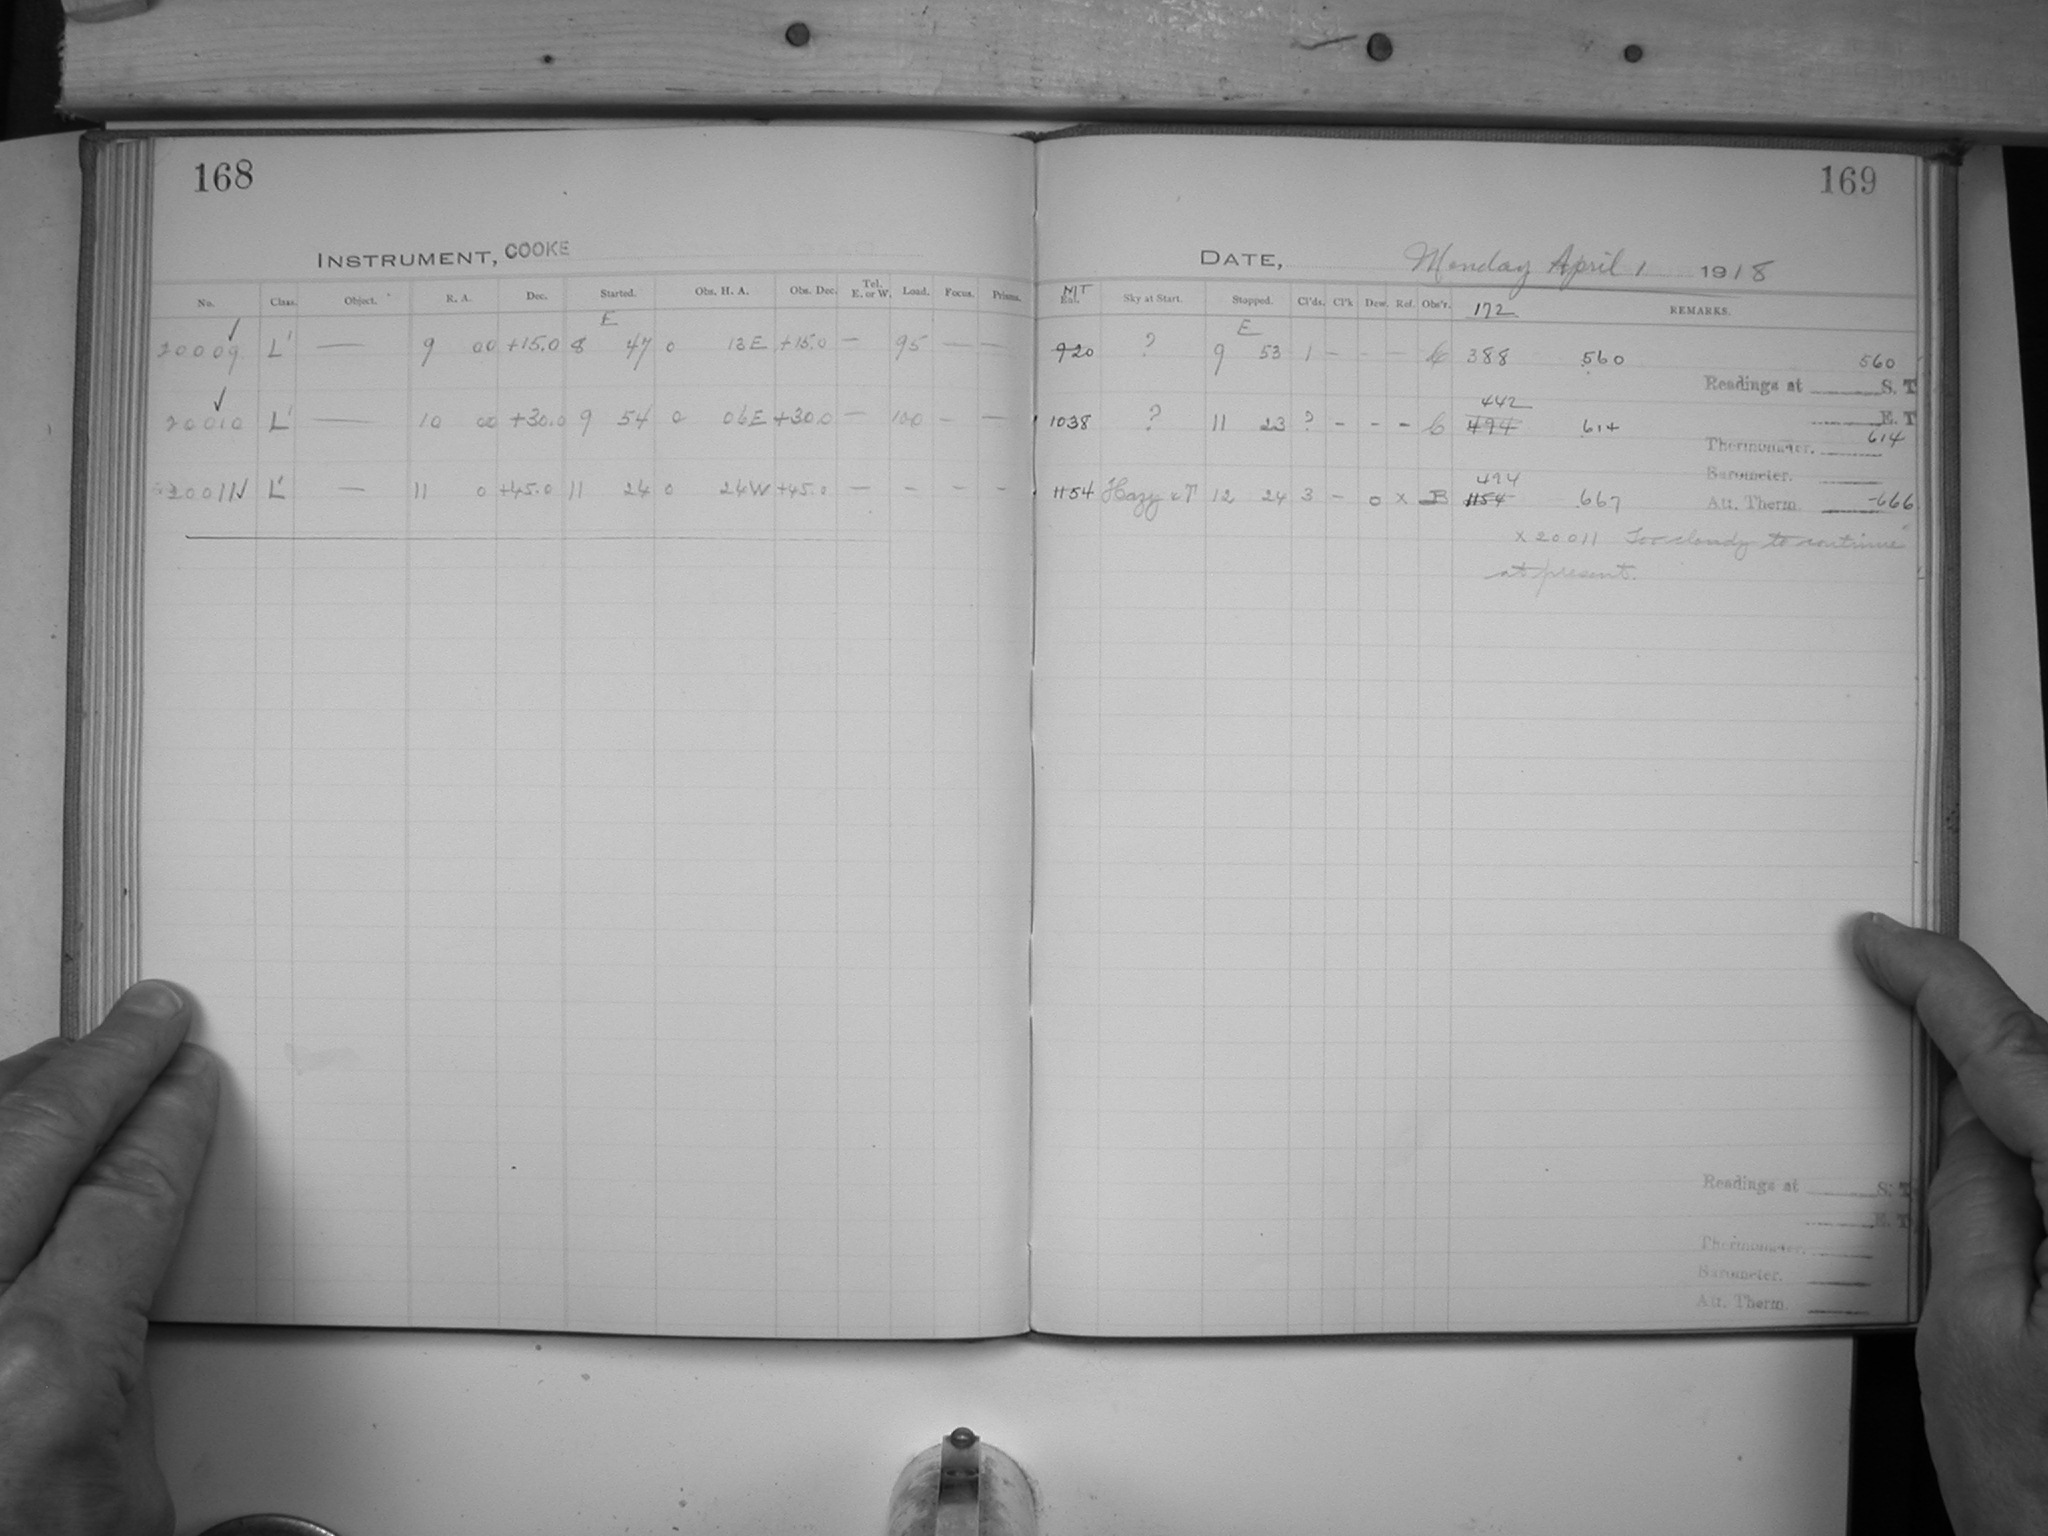 168
INSTRUMENT, COOKE
No. Class. Object. R. A. Dec. Started. Obs. H. A. Obs. Dec. Tel. E. or W. Load. Focus. Prisms.
E
20009 L' — 9 00 +15.0 8 47 0 13E +15.0 — 95 — —
20010 L' — 10 00 +30.0 9 54 0 06E +30.0 — 100 – —
20011 L' — 11 0 +45.0 11 24 0 24W +45.0 — – – –
169
DATE, Monday April 1 1918
MT
Sky at Start. Stopped. Cl'ds. Cl'k Dew. Ref. Obs'r. 172 REMARKS.
E
920 ? 9 53 1 – – – C 388 560 560
Readings at S. T
442
1038 ? 11 23 ? – – – C 494 614 E. T
Thermometer. 614
Barometer.
494
1154 Hazy & T 12 24 3 – 0 x B 1154 667 Att. Therm. -666
x 20011 Too cloudy to continue
at present.
Readings at S. T
E. T
Thermometer.
Barometer.
Att. Therm.